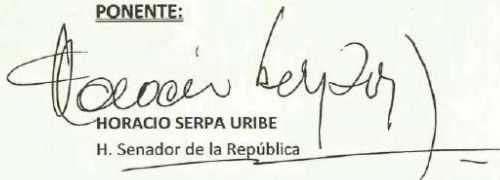 PONENTE:
Horacio Serpa
HORACIO SERPA URIBE
H. Senador de la República